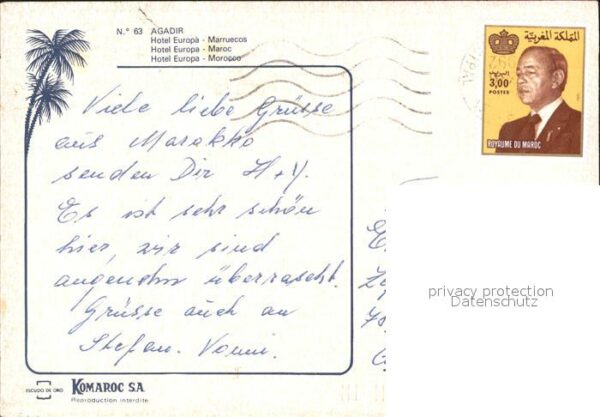 N.° 63 AGADIR
Hotel Europa - Marruecos
Hotel Europa - Maroc
Hotel Europa - Morocco
المملكة المغربية
البريد
3,00
POSTES
ROYAUME DU MAROC
Viele liebe Grüsse
aus Marokko
senden Dir H+Y.
Es ist sehr schön
hier, wir sind
angenehm überrascht.
Grüsse auch an
Stefan.
privacy protection
Datenschutz
ESCUDO DE ORO
KOMAROC S.A.
Reproduction interdite